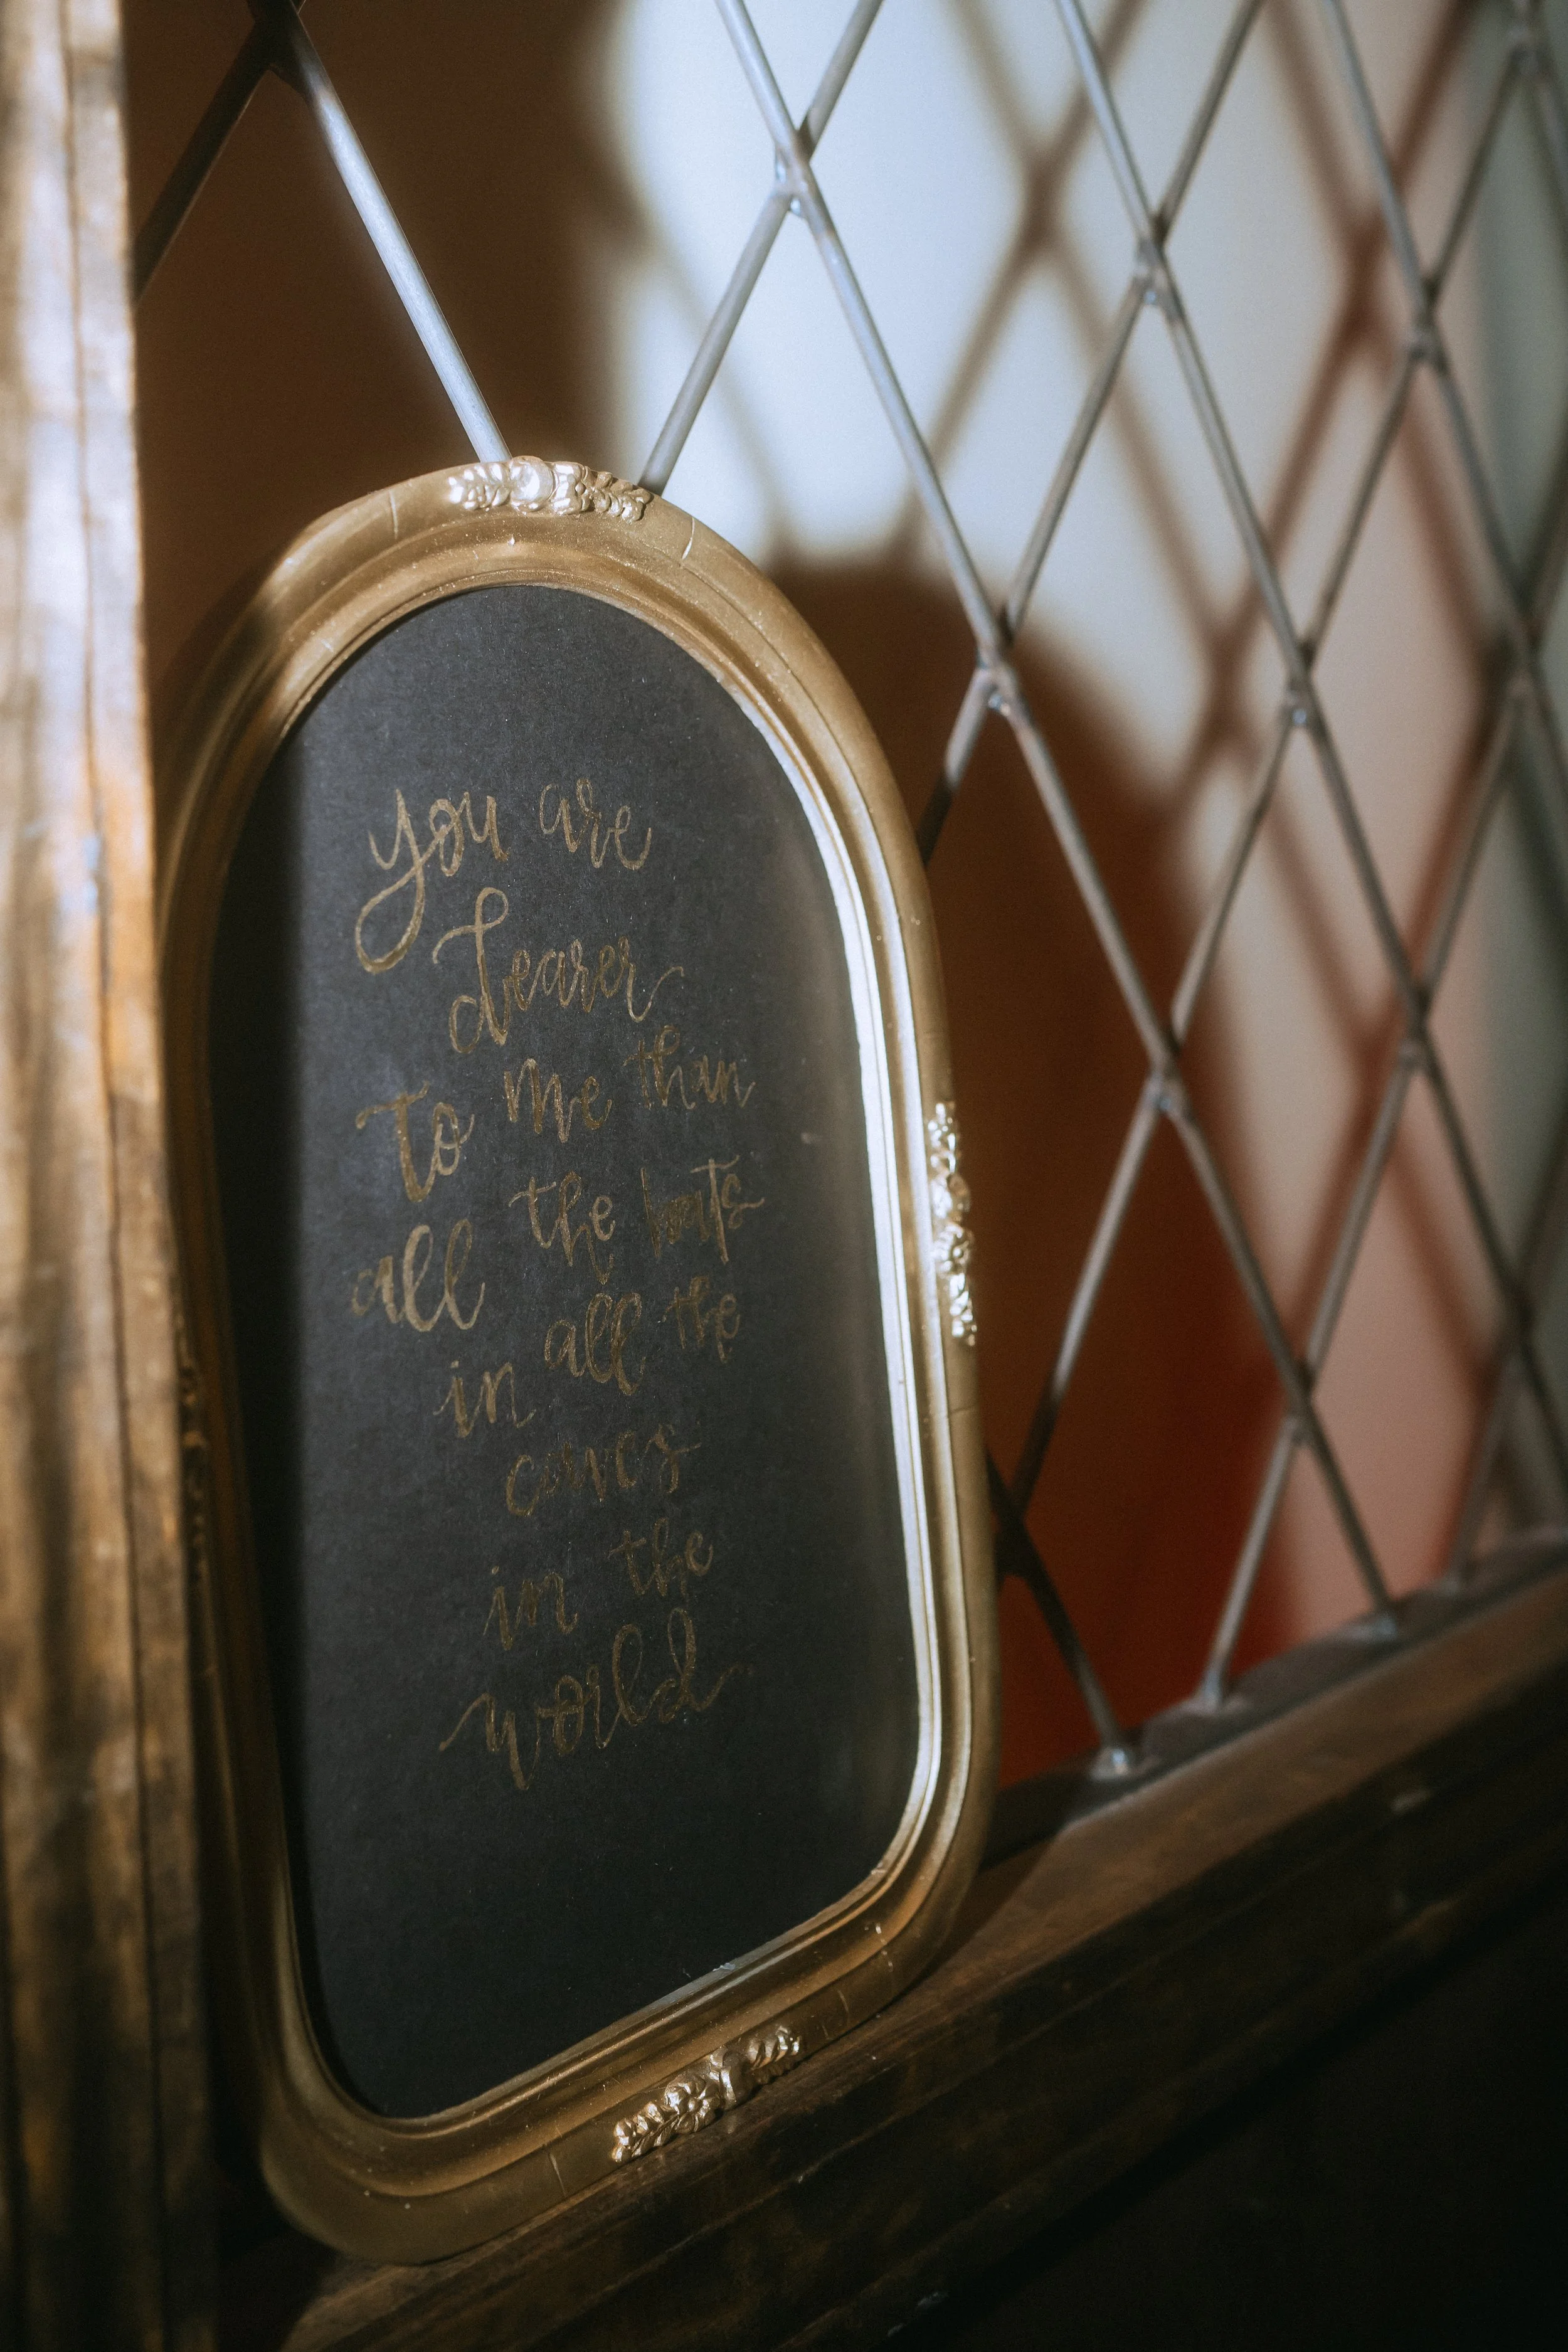 you are
dearer
to me than
all the bats
in all the
caves
in the
world